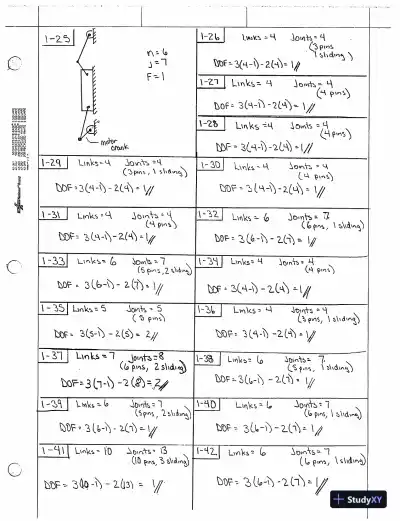 1-25
n = 6
j = 7
F = 1
motor
crank
1-26 Links = 4 Joints = 4
(3 pins
1 sliding)
DOF = 3(4-1) - 2(4) = 1//
1-27 Links = 4 Joints = 4
(4 pins)
DOF = 3(4-1) - 2(4) = 1//
1-28 Links = 4 Joints = 4
(4 pins)
DOF = 3(4-1) - 2(4) = 1//
1-29 Links = 4 Joints = 4
(3 pins, 1 sliding)
DOF = 3(4-1) - 2(4) = 1//
1-30 Links = 4 Joints = 4
(4 pins)
DOF = 3(4-1) - 2(4) = 1//
1-31 Links = 4 Joints = 4
(4 pins)
DOF = 3(4-1) - 2(4) = 1//
1-32 Links = 6 Joints = 7
(6 pins, 1 sliding)
DOF = 3(6-1) - 2(7) = 1//
1-33 Links = 6 Joints = 7
(5 pins, 2 sliding)
DOF = 3(6-1) - 2(7) = 1//
1-34 Links = 4 Joints = 4
(4 pins)
DOF = 3(4-1) - 2(4) = 1//
1-35 Links = 5 Joints = 5
(5 pins)
DOF = 3(5-1) - 2(5) = 2//
1-36 Links = 4 Joints = 4
(3 pins, 1 sliding)
DOF = 3(4-1) - 2(4) = 1//
1-37 Links = 7 Joints = 8
(6 pins, 2 sliding)
DOF = 3(7-1) - 2(8) = 2//
1-38 Links = 6 Joints = 7
(5 pins, 1 sliding)
DOF = 3(6-1) - 2(7) = 1//
1-39 Links = 6 Joints = 7
(5 pins, 2 sliding)
DOF = 3(6-1) - 2(7) = 1//
1-40 Links = 6 Joints = 7
(6 pins, 1 sliding)
DOF = 3(6-1) - 2(7) = 1//
1-41 Links = 10 Joints = 13
(10 pins, 3 sliding)
DOF = 3(10-1) - 2(13) = 1//
1-42 Links = 6 Joints = 7
(6 pins, 1 sliding)
DOF = 3(6-1) - 2(7) = 1//
StudyXY